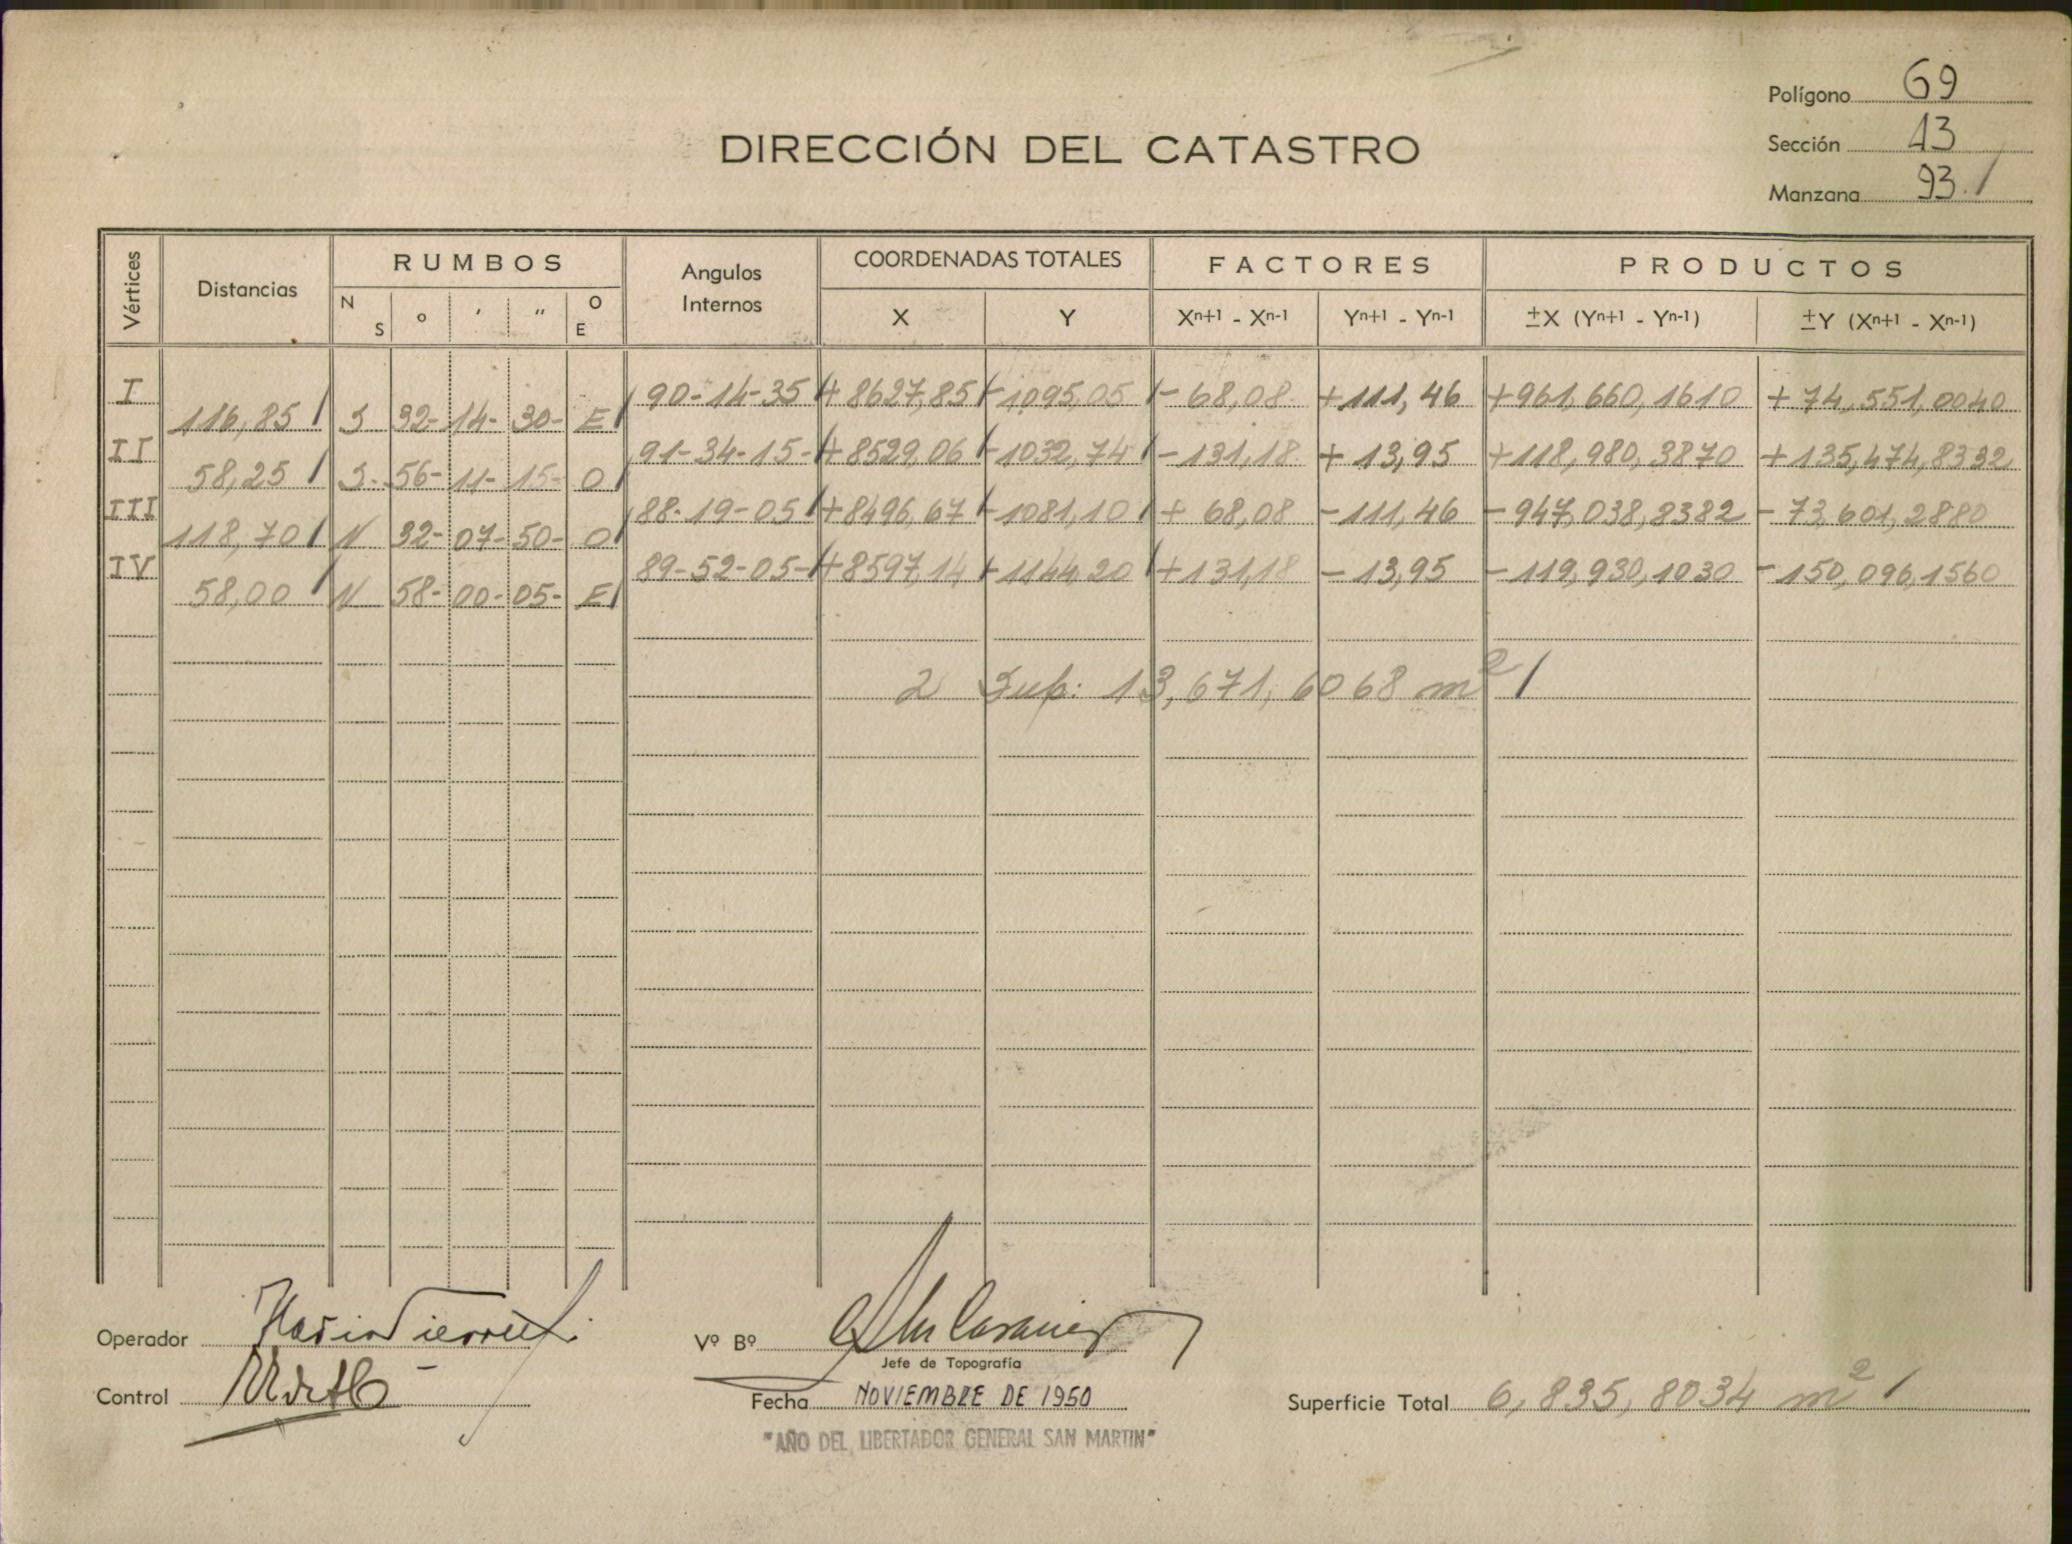 Polígono 69
DIRECCIÓN DEL CATASTRO
Sección 13
Manzana 93
Vértices Distancias RUMBOS Angulos Internos COORDENADAS TOTALES FACTORES PRODUCTOS
N S º ' " O E X Y Xn+1 - Xn-1 Yn+1 - Yn-1 ±X (Yn+1 - Yn-1) ±Y (Xn+1 - Xn-1)
I 90-14-35 +8627,85 -1095,05 -68,08 +111,46 +961,660,1610 +74,551,0040
116,85 S 32-14-30-E
II 91-34-15- +8529,06 -1032,74 -131,18 +13,95 +118,980,3870 +135,474,8332
58,25 S-56-11-15-O
III 88-19-05 +8496,67 -1081,10 +68,08 -111,46 -947,038,8382 -73,601,2880
118,70 N 32-07-50-O
IV 89-52-05- +8597,14 -1144,20 +131,18 -13,95 -119,930,1030 -150,096,1560
58,00 N 58-00-05-E
2 Sup: 13,671,6068 m²
Operador
Vº Bº
Jefe de Topografía
Control
Fecha NOVIEMBRE DE 1950
Superficie Total 6,835,8034 m²
"AÑO DEL LIBERTADOR GENERAL SAN MARTIN"